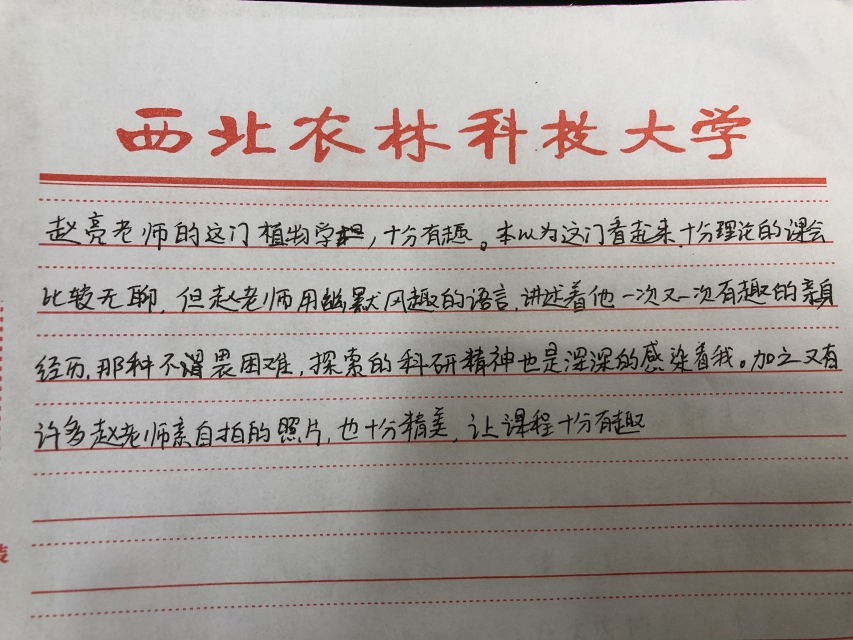 西北农林科技大学
赵亮老师的这门植物学，十分有趣。本以为这门看起来十分理论的课会
比较无聊，但赵老师用幽默风趣的语言，讲述着他一次又一次有趣的亲身
经历，那种不畏困难，探索的科研精神也是深深的感染着我。加之又有
许多赵老师亲自拍的照片，也十分精美，让课程十分有趣